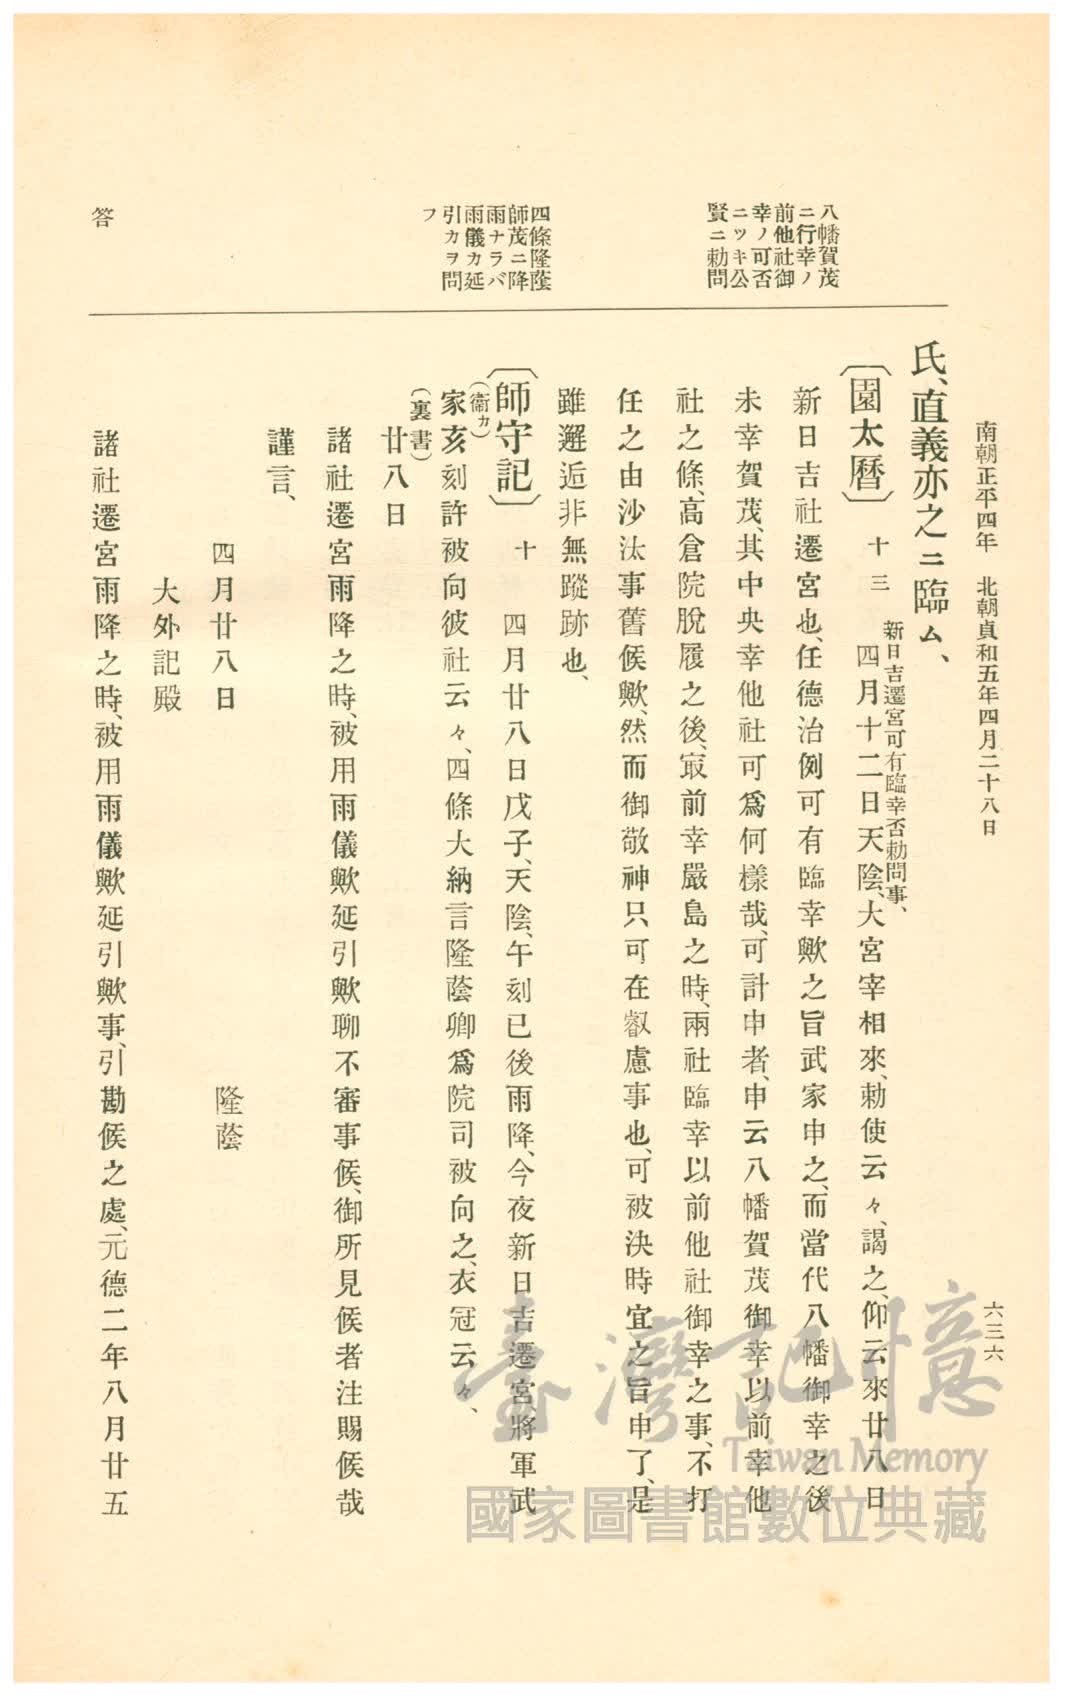 南朝正平四年　北朝貞和五年四月二十八日
六三六
八幡賀茂
ニ行幸ノ
前他社御
幸ノ可否
ニツキ公
賢ニ勅問
四條隆蔭
師茂ニ降
雨ナラバ
雨儀カ延
引カヲ問
フ
答
氏、直義亦之ニ臨ム、
新日吉遷宮可有臨幸否勅問事、
〔園太曆〕十三　四月十二日天陰、大宮宰相來、勅使云々、謁之、仰云來廿八日
新日吉社遷宮也、任德治例可有臨幸歟之旨武家申之、而當代八幡御幸之後
未幸賀茂、其中央幸他社可爲何樣哉、可計申者、申云八幡賀茂御幸以前幸他
社之條、高倉院脫履之後、㝡前幸嚴島之時、兩社臨幸以前他社御幸之事、不打
任之由沙汰事舊候歟、然而御敬神只可在叡慮事也、可被決時宜之旨申了、是
雖邂逅非無蹤跡也、
〔師守記〕十　四月廿八日戊子、天陰、午刻已後雨降、今夜新日吉遷宮、將軍武
（衞カ）
家亥刻許被向彼社云々、四條大納言隆蔭卿爲院司被向之、衣冠云々、
（裏書）
廿八日
諸社遷宮雨降之時、被用雨儀歟延引歟聊不審事候、御所見候者注賜候哉
謹言、
四月廿八日　隆蔭
大外記殿
諸社遷宮雨降之時、被用雨儀歟延引歟事、引勘候之處、元德二年八月廿五
臺灣記憶
Taiwan Memory
國家圖書館數位典藏